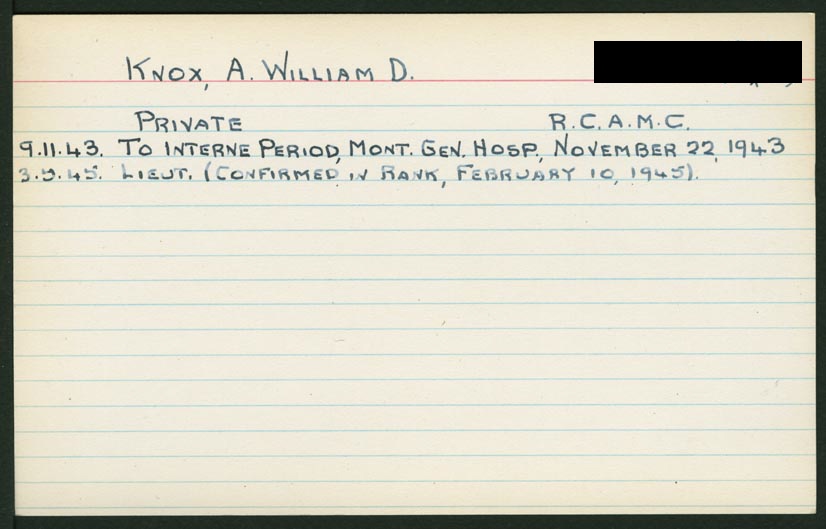 Knox, A. William D.
Private R.C.A.M.C.
9.11.43. To Interne Period, Mont. Gen. Hosp., November 22, 1943
3.5.45. Lieut. (Confirmed in Rank, February 10, 1945).